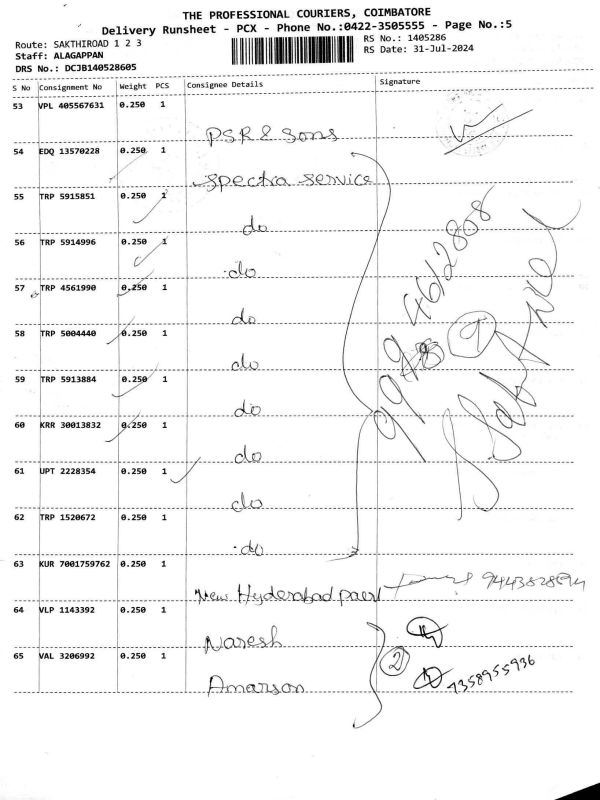 THE PROFESSIONAL COURIERS, COIMBATORE
Delivery Runsheet - PCX - Phone No.:0422-3505555 - Page No.:5
Route: SAKTHIROAD 1 2 3
Staff: ALAGAPPAN
DRS No.: DCJB140528605
RS No.: 1405286
RS Date: 31-Jul-2024
S No Consignment No Weight PCS Consignee Details Signature
53 VPL 405567631 0.250 1
PSR & Sons
54 EDQ 13570228 0.250 1
Spectra service
55 TRP 5915851 0.250 1
do
56 TRP 5914996 0.250 1
do
57 TRP 4561990 0.250 1
do
58 TRP 5004440 0.250 1
do
59 TRP 5913884 0.250 1
do
60 KRR 30013832 0.250 1
do
61 UPT 2228354 0.250 1
do
62 TRP 1520672 0.250 1
do
9
63 KUR 7001759762 0.250 1
New Hyderabad
64 VLP 1143392 0.250 1
Naresh
65 VAL 3206992 0.250 1
Amarson
2
7358955936